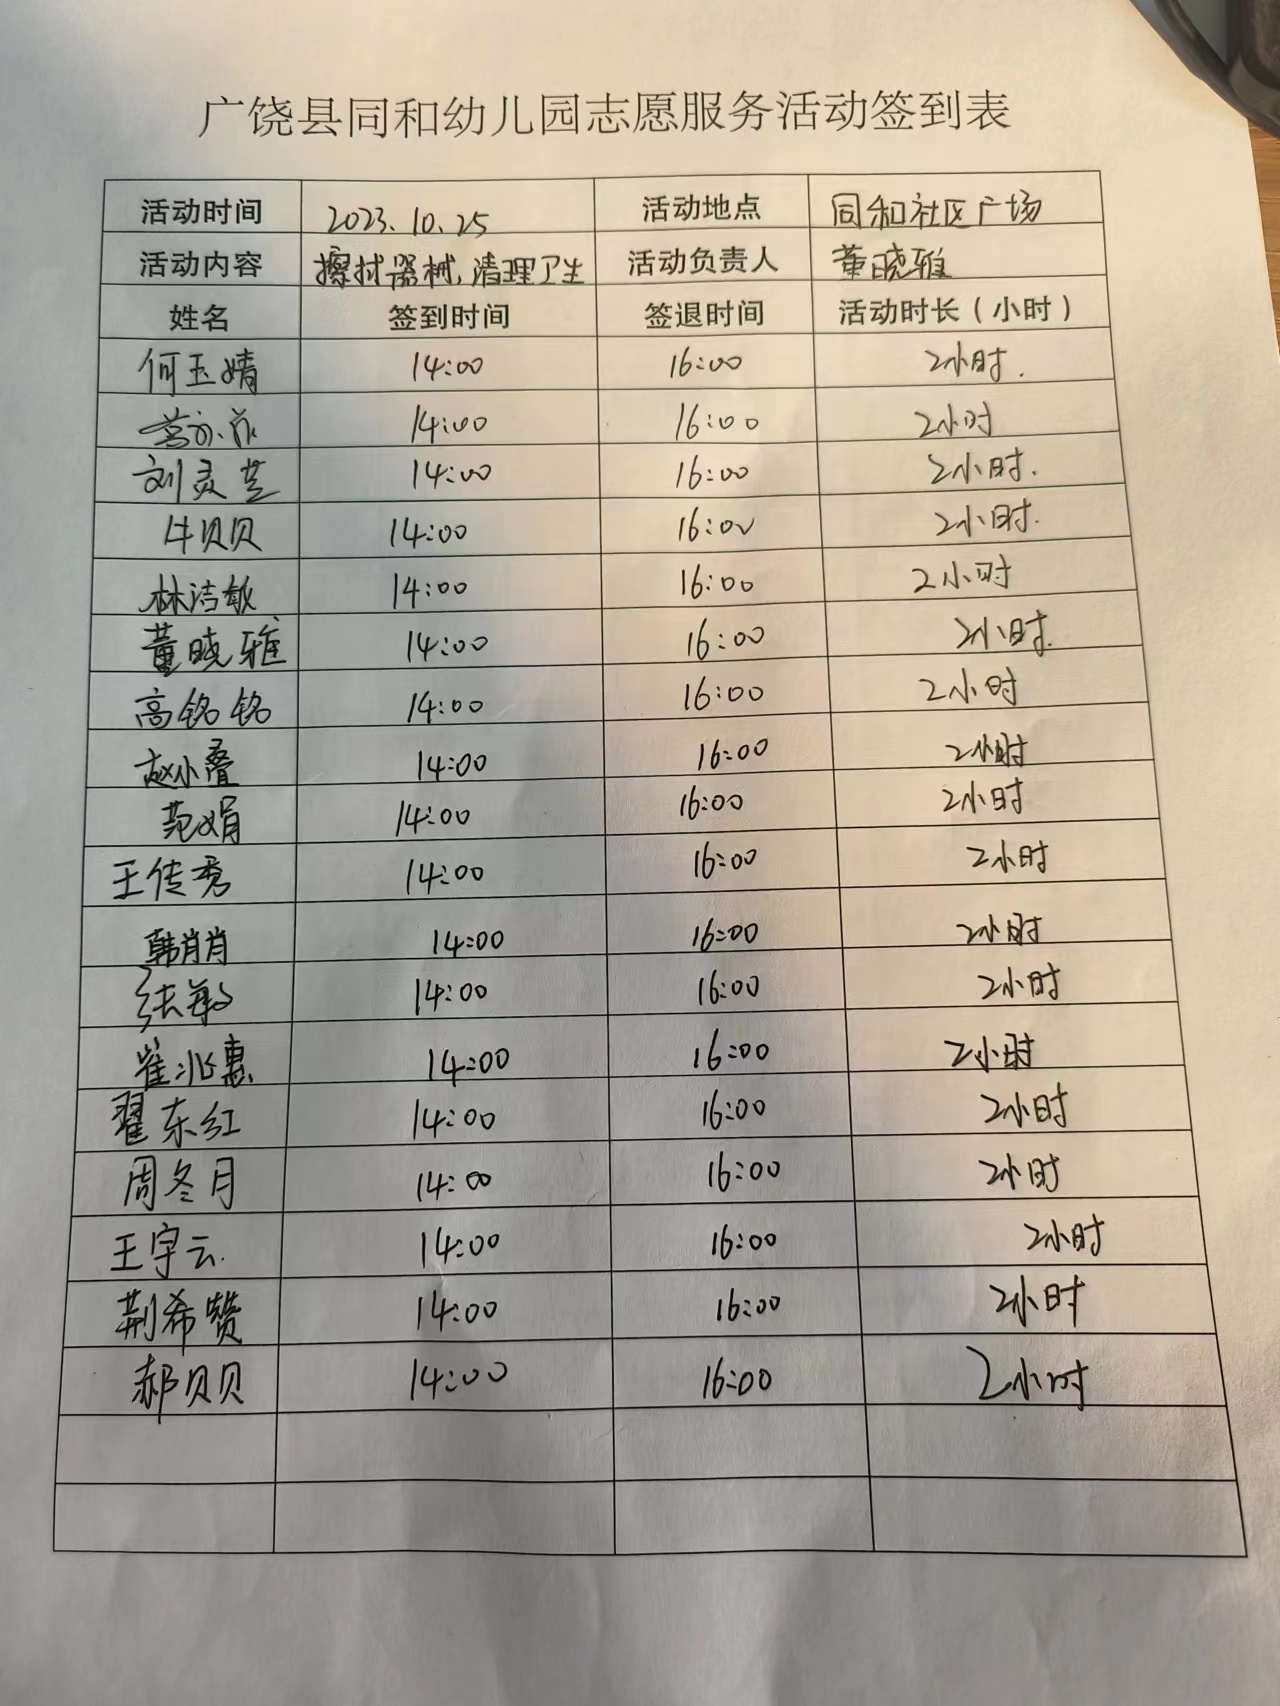 广饶县同和幼儿园志愿服务活动签到表
活动时间 2023.10.25 活动地点 同和社区广场
活动内容 擦拭器械,清理卫生 活动负责人 董晓雅
姓名 签到时间 签退时间 活动时长(小时)
何玉婧 14:00 16:00 2小时.
14:00 16:00 2小时
刘灵芝 14:00 16:00 2小时.
牛贝贝 14:00 16:00 2小时.
林洁敏 14:00 16:00 2小时
董晓雅 14:00 16:00 2小时.
高铭铭 14:00 16:00 2小时
赵小叠 14:00 16:00 2小时
范娟 14:00 16:00 2小时
王传秀 14:00 16:00 2小时
韩肖肖 14:00 16:00 2小时
张敏 14:00 16:00 2小时
崔兆惠 14:00 16:00 2小时
翟东红 14:00 16:00 2小时
周冬月 14:00 16:00 2小时
王宇云. 14:00 16:00 2小时
荆希赞 14:00 16:00 2小时
郝贝贝 14:00 16:00 2小时